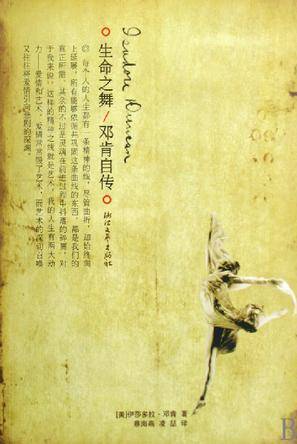 Isadora Duncan
生命之舞/邓肯自传
浙江文艺出版社
◎ 每个人的人生都有一条精神的线,尽管曲折,却始终向
上延展,所有能够依附并巩固这条曲线的东西,都是我们的
真正所需,其余的不过是灵魂在前进过程中抖落的碎屑。对
于我来说,这样的精神之线就是艺术。我的人生有两大动
力——爱情和艺术,爱情常常毁了艺术,而艺术的深切召唤
又往往将爱情引向悲剧的深渊。
[美]伊莎多拉·邓肯 著
蔡海燕 凌喆 译
B